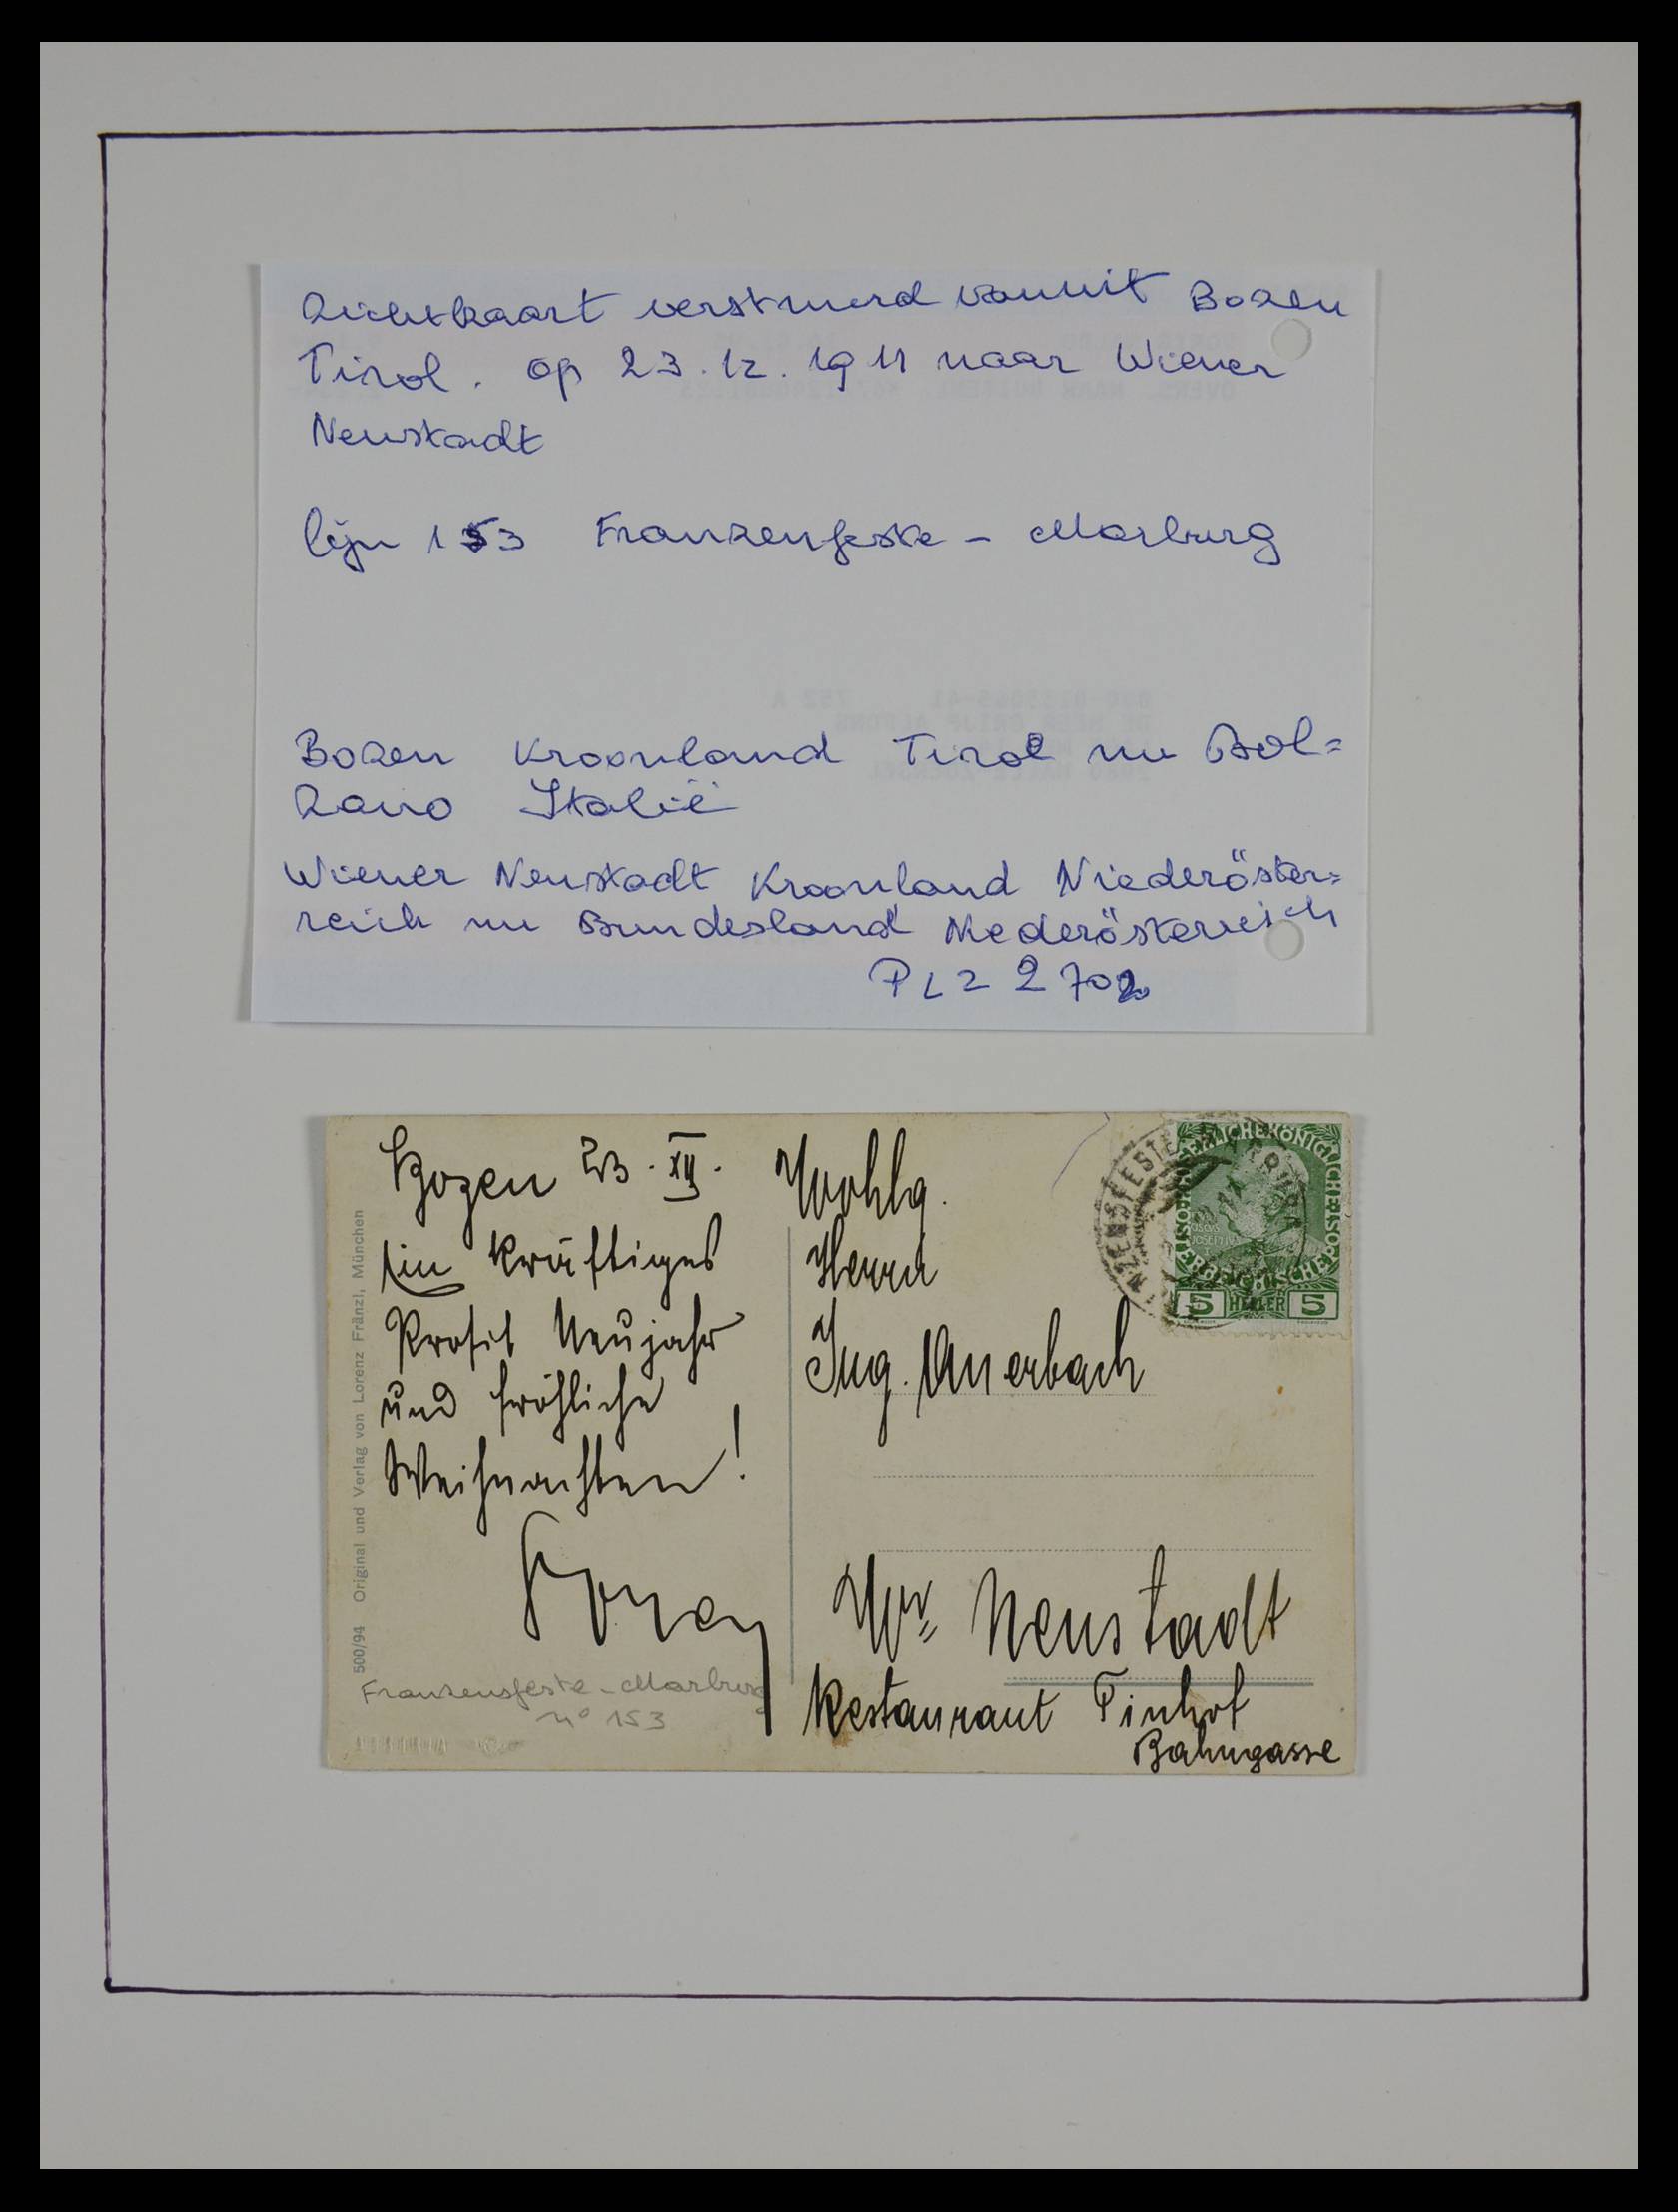 Zichtkaart verstuurd vanuit Bozen
Tirol. op 23.12.1911 naar Wiener
Neustadt
lijn 153 Franzenfeste - Marburg
Bozen Kroonland Tirol nu Bol=
zano Italië
Wiener Neustadt Kroonland Niederöster=
reich nu Bundesland Niederösterreich
PLZ 2702
Bozen 23. XII.
Ein kräftiges
Prosit Neujahr
und fröhliche
Weihnachten!
Franzensfeste - Marburg
n° 153
500/94 Original und Verlag von Lorenz Fränzl, München
Wohlg.
Herrn
Ing. Auerbach
Wr. Neustadt
Restaurant Pinhof
Bahngasse
KAISERLICHE KÖNIGLICHE ÖSTERREICHISCHE POST
5 HELLER 5